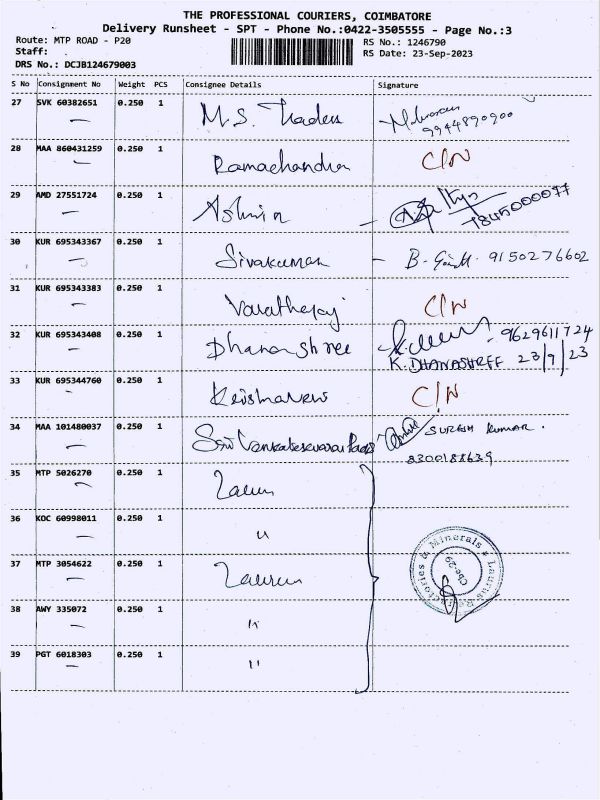 THE PROFESSIONAL COURIERS, COIMBATORE
Delivery Runsheet - SPT - Phone No.:0422-3505555 - Page No.:3
Route: MTP ROAD - P20 RS No.: 1246790
Staff: RS Date: 23-Sep-2023
DRS No.: DCJB124679003
S No Consignment No Weight PCS Consignee Details Signature
27 SVK 60382651 0.250 1 M.S. Traders
9944890900
28 MAA 860431259 0.250 1 Ramachandra C/N
29 AMD 27551724 0.250 1 Ashwin
30 KUR 695343367 0.250 1 Sivakumar - B. 9150276602
31 KUR 695343383 0.250 1 Varatharaj C/N
32 KUR 695343408 0.250 1 Dhanashree 9629611724
K. DHANASHREE 23/9/23
33 KUR 695344760 0.250 1 C/N
34 MAA 101480037 0.250 1 Sri Venkateswara SURESH KUMAR.
8300188639
35 MTP 5026270 0.250 1
36 KOC 60998011 0.250 1 "
37 MTP 3054622 0.250 1
38 AWY 335072 0.250 1 "
39 PGT 6018303 0.250 1 "
Minerals * Laurus
Cbe-29